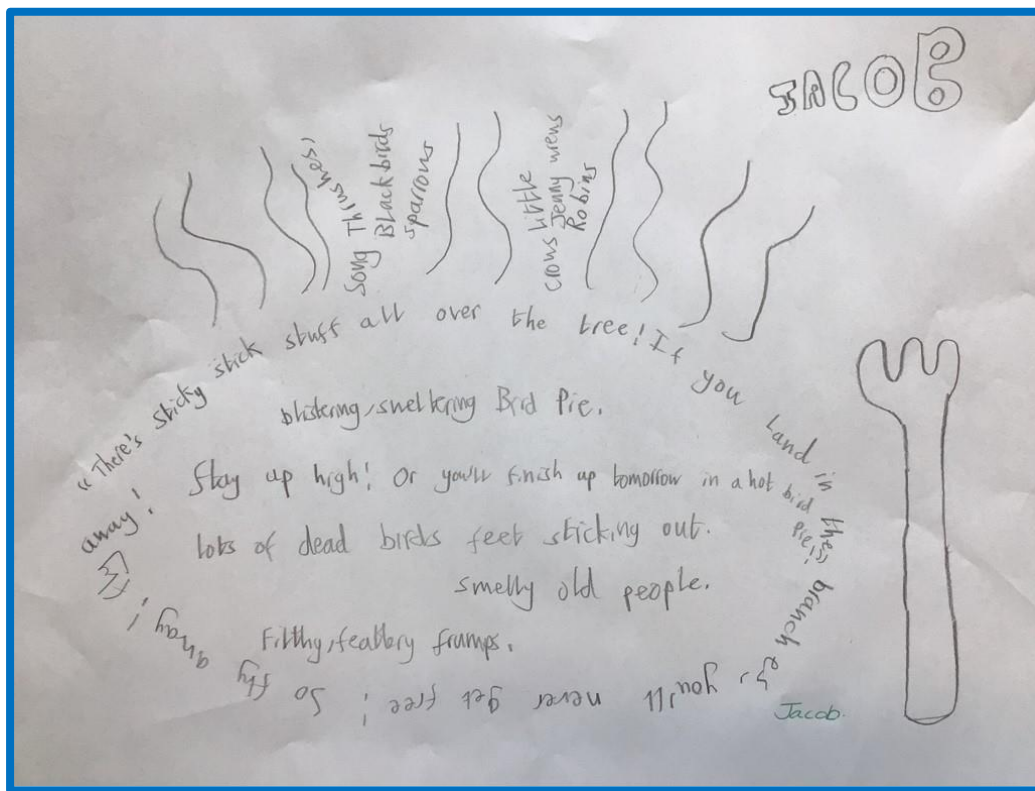 JACOB
Song Thrushes,
Blackbirds
Sparrows
crows little
Jenny wrens
Robins
"There's sticky stick stuff all over the tree! If you Land in the branch es, you'll never get free! So fly away! Fly away!
blistering, smeltering Bird Pie.
Stay up high! Or you'll finish up tomorrow in a hot bird Pie!"
lots of dead birds feet sticking out.
smelly old people.
Filthy, feathery frumps.
Jacob.